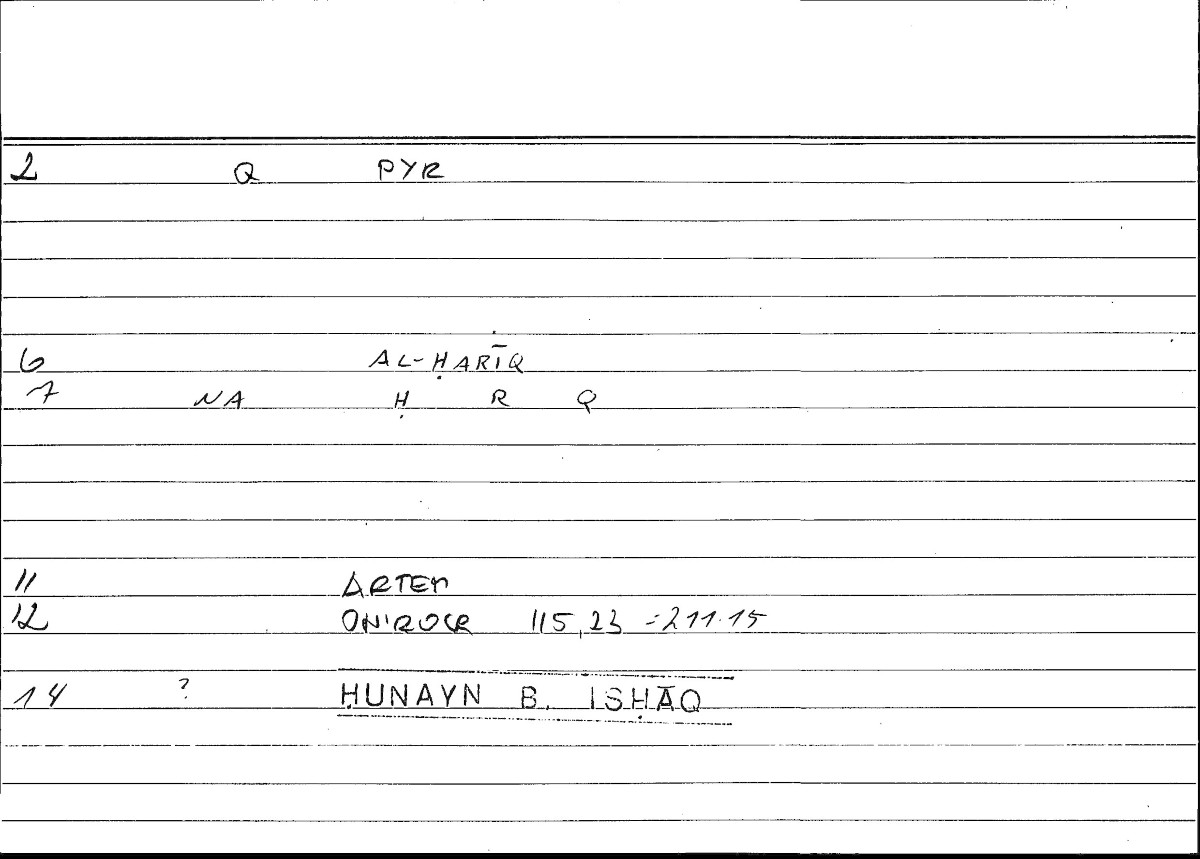 2 Q PYR
6 AL-ḤARĪQ
7 NA Ḥ R Q
11 ARTEM
12 ONIROCR 115,23 = 211.15
14 ? ḤUNAYN B. ISḤĀQ